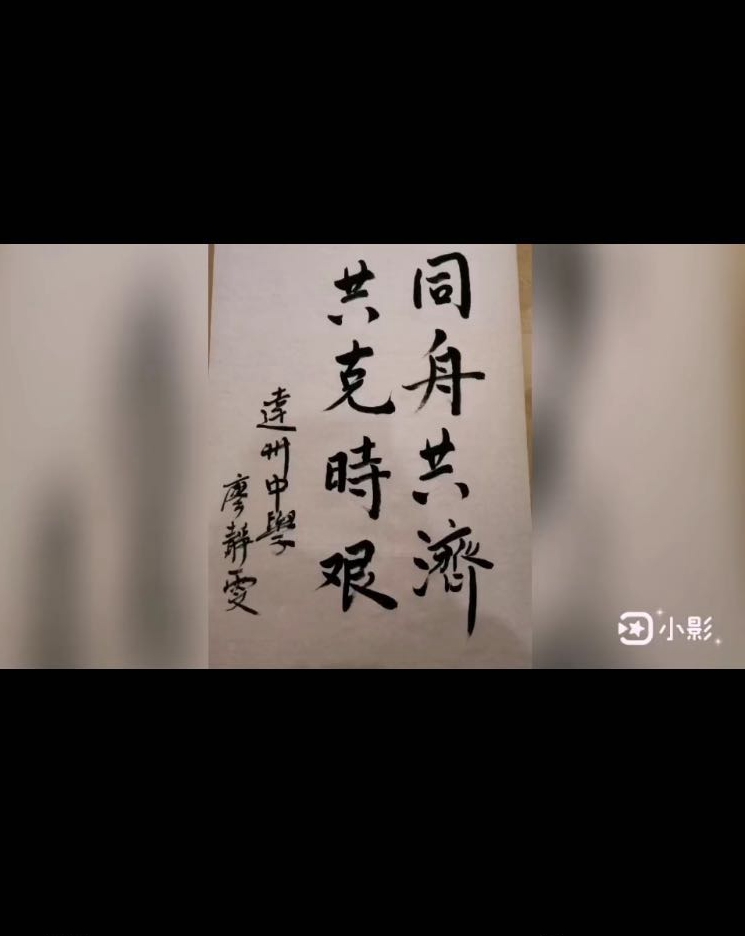 同舟共濟
共克時艰
達州中學
廖靜雯
小影